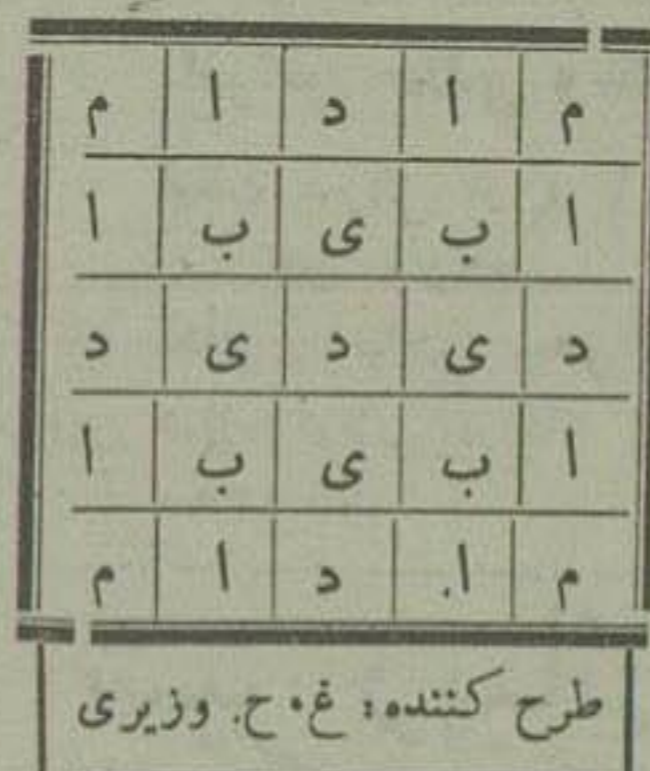 م ا د ا م
ا ب ی ب ا
د ی د ی د
ا ب ی ب ا
م ا د ا م
طرح کننده: غ. ح. وزیری